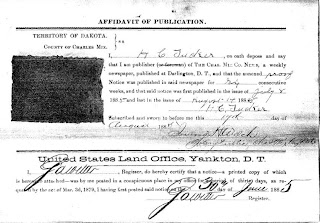 AFFIDAVIT OF PUBLICATION.
TERRITORY OF DAKOTA,
COUNTY OF CHARLES MIX.
I, H C Tucker, on oath depose and say
that I am publisher of THE CHAS. MIX CO. NEWS, a weekly
newspaper, published at Darlington, D. T., and that the annexed proof
Notice was published in said newspaper for Six consecutive
weeks, and that said notice was first published in the issue of July 8
1885 and last in the issue of August 1885
H C Tucker
Subscribed and sworn to before me this 17th day of
August 1885
United States Land Office, Yankton, D. T.
I, G A Wetter, Register, do hereby certify that a notice—a printed copy of which
is hereto attached—was by me posted in a conspicuous place in my office for a period of thirty days, as re-
quired by the Act Mar. 3d, 1879, I having first posted said notice on the 30th day of June 1885
G A Wetter
Register.